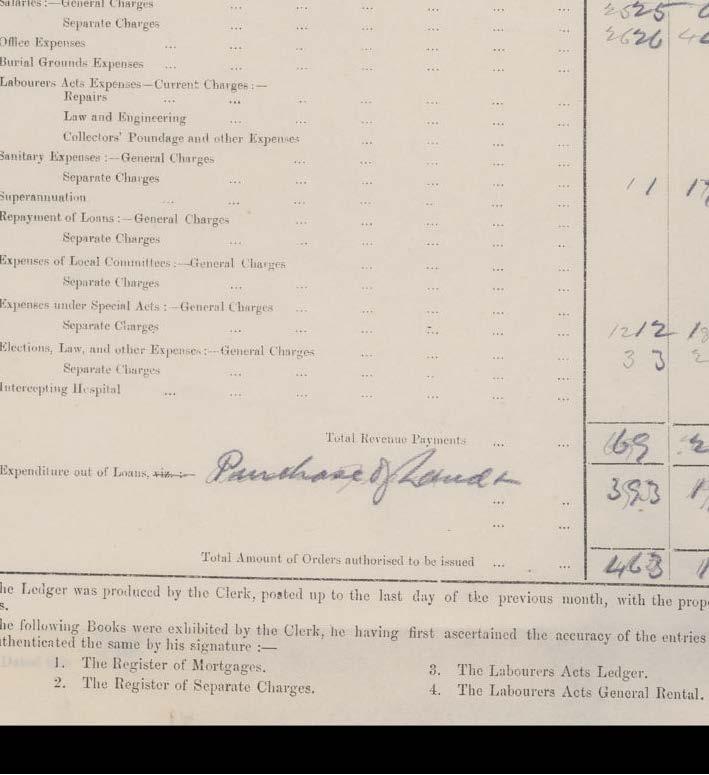 Salaries :—General Charges ... ... ... ... ... ... 25 25
Separate Charges ... ... ... ... ... ... 26 26
Office Expenses ... ... ... ... ... ... ...
Burial Grounds Expenses ... ... ... ... ... ... ...
Labourers Acts Expenses—Current Charges :—
Repairs ... ... ... ... ... ... ...
Law and Engineering ... ... ... ... ... ...
Collectors' Poundage and other Expenses ... ... ... ...
Sanitary Expenses :—General Charges ... ... ... ... ...
Separate Charges ... ... ... ... ... ... 1 1
Superannuation ... ... ... ... ... ... ...
Repayment of Loans :—General Charges ... ... ... ... ...
Separate Charges ... ... ... ... ... ...
Expenses of Local Committees :—General Charges ... ... ... ...
Separate Charges ... ... ... ... ... ...
Expenses under Special Acts :—General Charges ... ... ... ... ...
Separate Charges ... ... ... ... ... ... 12 12
Elections, Law, and other Expenses :—General Charges ... ... ... ... 3 3
Separate Charges ... ... ... ... ... ...
Intercepting Hospital ... ... ... ... ... ... ...
Total Revenue Payments ... ... 69
Expenditure out of Loans, viz. :— Purchase of Land 393
... ...
... ...
Total Amount of Orders authorised to be issued ... ... 463
he Ledger was produced by the Clerk, posted up to the last day of the previous month, with the prope
s.
he following Books were exhibited by the Clerk, he having first ascertained the accuracy of the entries
uthenticated the same by his signature :—
1. The Register of Mortgages.
2. The Register of Separate Charges.
3. The Labourers Acts Ledger.
4. The Labourers Acts General Rental.